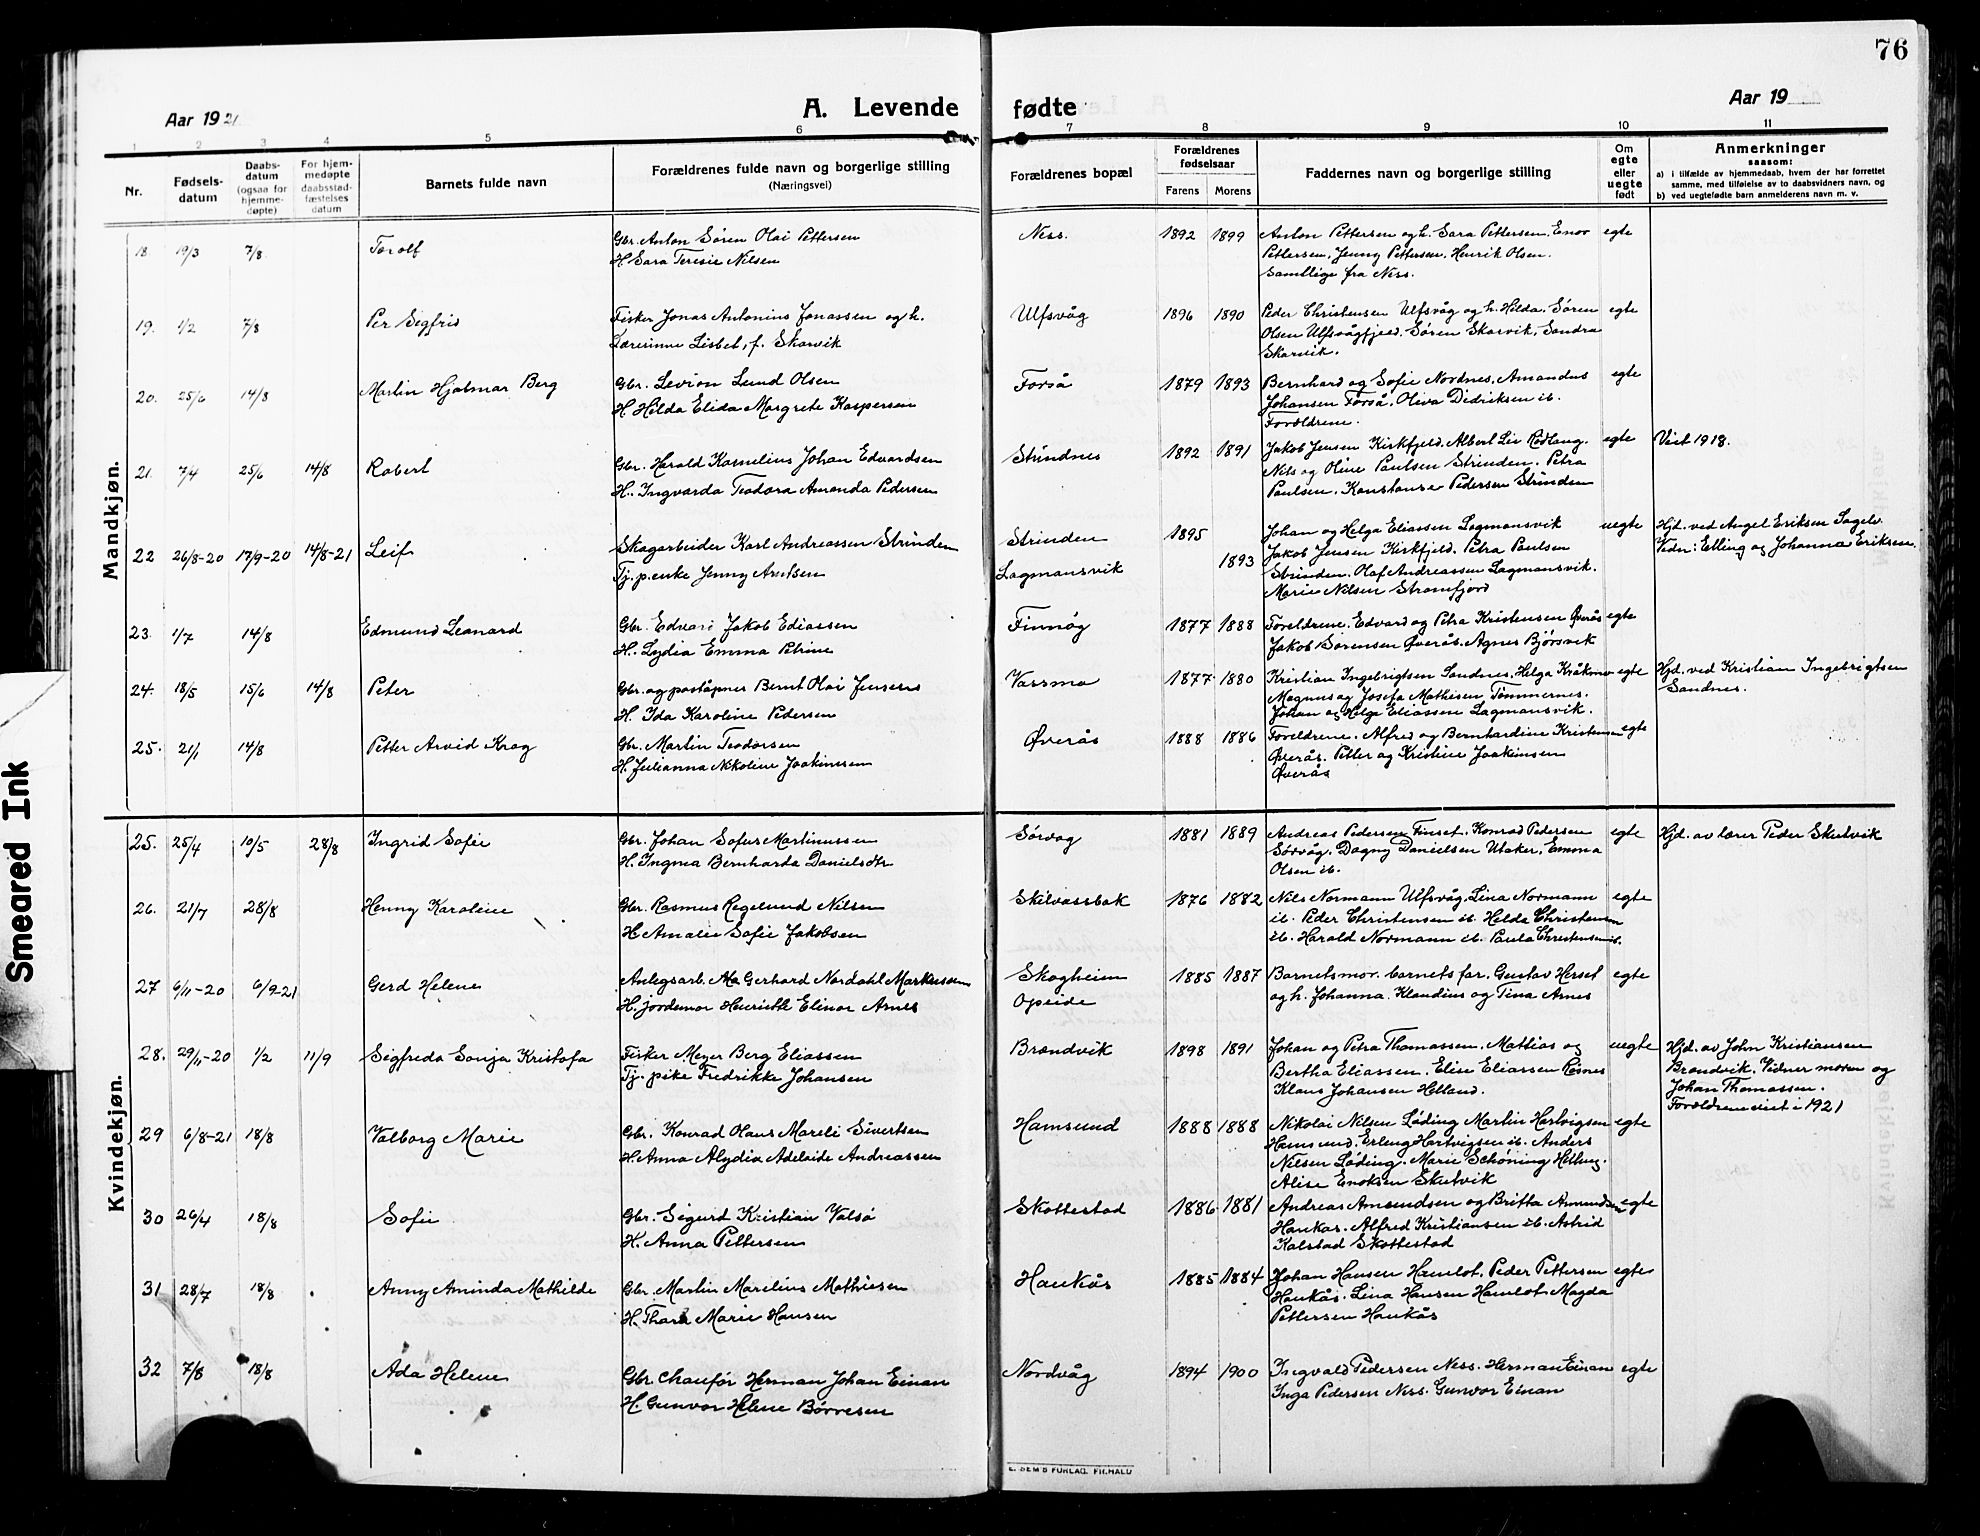 76
Aar 1921
A. Levende fødte
Aar 19
1 2 3 4 5 6 7 8 9 10 11
Nr.
Fødsels-
datum
Daabs-
datum
(ogsaa for
hjemme-
døpte)
For hjem-
medøpte
daabsstad-
fæstelses
datum
Barnets fulde navn
Forældrenes fulde navn og borgerlige stilling
(Næringsvei)
Forældrenes bopæl
Forældrenes
fødselsaar
Farens Morens
Faddernes navn og borgerlige stilling
Om
egte
eller
uegte
født
Anmerkninger
saasom:
a) i tilfælde av hjemmedaab, hvem der har forrettet
samme, med tilføielse av to daabsvidners navn, og
b) ved uegtefødte barn anmelderens navn m. v.
Mandkjøn.
18. 19/3 7/8 Torolf
Gbr. Anton Søren Olai Pettersen
H. Sara Teresie Nilsen
Ness. 1892 1899
Anton Pettersen og h. Sara Pettersen. Enor
Pettersen, Jenny Pettersen. Henrik Olsen.
Samtlige fra Ness.
egte
19. 1/2 7/8 Per Segfrid
Fisker Jonas Antonius Jonassen og h.
Lærerinne Lisbet, f. Skarvik
Ulfsvåg 1896 1890
Peder Christensen Ulfsvåg og h. Hilda. Søren
Olsen Ulfsvågfjeld. Søren Skarvik, Sandra
Skarvik.
egte
20. 25/6 14/8 Martin Hjalmar Berg
Gbr. Levion Lund Olsen
H. Hilda Elida Margrete Kaspersen
Forså 1879 1893
Bernhard og Sofie Nordnes. Amandus
Johansen Forså. Oliva Didriksen ib.
Forældrene.
egte
21. 7/4 25/6 14/8 Robert
Gbr. Harald Kornelius Johan Edvardsen
H. Ingvarda Teodora Amanda Pedersen
Strindnes 1892 1891
Jakob Jensen Kirkfjeld. Albert Lie Rødlang.
Nils og Oline Paulsen Strinden. Petra
Paulsen. Konstanse Pedersen Strinden
egte
Viet 1918.
22 26/8-20 17/9-20 14/8-21 Leif
Skogarbeider Karl Andreassen Strinden
Tj. p. enke Jenny Arntsen
Strinden 1895
Lagmansvik 1893
Johan og Helga Eliassen Lagmansvik
Jakob Jensen Kirkfjeld. Petra Paulsen
Strinden. Olaf Andreassen Lagmansvik.
Marie Nilsen Stromfjord
uegte
Hjd. ved Angel Eriksen Sagelv.
Vidn: Elling og Johanna Eriksen.
23. 1/7 14/8 Edmund Leonard
Gbr. Edvard Jakob Ediassen
H. Lydia Emma Petrine
Finnøy 1877 1888
Foreldrene. Edvard og Petra Kristensen Øverås
Jakob Sørensen Øverås. Agnes Bjørsvik
egte
24. 18/5 15/6 14/8 Peter
Gbr. og poståpner Bernt Olai Jensens
H. Ida Karoline Pedersen
Vassmo 1877 1880
Kristian Ingebrigtsen Sandnes. Helga Kråkmo
Magnus og Josefa Mathisen Tømmernes.
Johan og Helga Eliassen Lagmansvik.
egte
Hjd. ved Kristian Ingebrigtsen
Sandnes.
25. 21/1 14/8 Petter Arvid Krog
Gbr. Martin Teodorsen
H. Julianna Nikoline Joakimsen
Øverås 1888 1886
Foreldrene. Alfred og Bernhardine Kristensen
Øverås. Petter og Kristine Joakimsen
Øverås
egte
Kvindekjøn.
25. 25/4 10/5 28/8 Ingrid Sofie
Gbr. Johan Sofus Martinussen
H. Ingma Bernharda Danielsdtr
Sørvåg 1881 1889
Andreas Pedersen Finset. Konrad Pedersen
Sørvåg. Dagny Danielsen Utaker. Emma
Olsen ib.
egte
Hjd. av lærer Peder Skutvik
26. 21/7 28/8 Henny Karoline
Gbr. Rasmus Regelund Nilsen
H. Amalie Sofie Jakobsen
Skilvassbak 1876 1882
Nils Normann Ulfsvåg, Lina Normann
ib. Peder Christensen ib. Hilda Christensen
ib. Harald Normann ib. Paula Christensen ib.
egte
27 6/11-20 6/9-21 Gerd Helene
Anlegsarb. Gerhard Nordahl Markussen
H. Jordemor Henriette Elinor Arnes
Skogheim
Opeide
1885 1887
Barnets mor. barnets far. Gustav Herset
og h. Johanna. Klaudius og Tina Arnes
egte
28. 29/11-20 1/2 11/9 Sigfreda Sonja Kristofa
Fisker Meyer Berg Eliassen
Tj. pike Fredrikke Johansen
Brandvik 1898 1891
Johan og Petra Thomassen. Mathias og
Bertha Eliassen. Elise Eliassen Resnes
Klaus Johansen Helland.
uegte
Hjd. av John Kristiansen
Brandvik. Vidner moren og
Johan Thomassen.
Forældrene viet i 1921
29 6/8-21 18/8 Valborg Marie
Gbr. Konrad Hans Mareli Sivertsen
H. Anna Alydia Adelaide Andreassen
Hamsund 1888 1888
Nikolai Nilsen Løding Martin Hartvigsen
Hamsund. Erling Hartvigsen ib. Anders
Nilsen Løding. Marie Schøning
Alise Enoksen Skutvik
egte
30 26/4 18/8 Sofie
Gbr. Sigurd Kristian Valsø
H. Anna Pettersen
Skottestad 1886 1881
Andreas Amundsen og Britta Amundsen
Haukås. Alfred Kristiansen ib. Astrid
Kalstad Skottestad
egte
31 28/7 18/8 Anny Aminda Mathilde
Gbr. Martin Marelius Mathisen
H. Thara Marie Hansen
Haukås 1885 1884
Johan Hansen Hamlot. Peder Pettersen
Haukås. Lina Hansen Hamlot. Magda
Pettersen Haukås
egte
32 7/8 18/8 Ada Helene
Gbr. chaufør Herman Johan Einan
H. Gunvor Helene Børresen
Nordvåg 1894 1900
Ingvald Pedersen Ness. Herman Einan
Inga Pedersen Ness. Gunvor Einan
egte
E. SEM'S FORLAG, FR.HALD
Smeared Ink